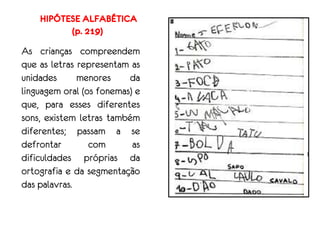 HIPÓTESE ALFABÉTICA
(p. 219)
As crianças compreendem
que as letras representam as
unidades menores da
linguagem oral (os fonemas) e
que, para esses diferentes
sons, existem letras também
diferentes; passam a se
defrontar com as
dificuldades próprias da
ortografia e da segmentação
das palavras.
Nome JEFERLON
1-GATO
2-PATO
3-FOCA
4-A VACA
5-UM MACACO
6-TATU
TATU
7-BOLA
8-SAPO
SAPO
9-CAVALO
CAVALO
10-DADO
DADO